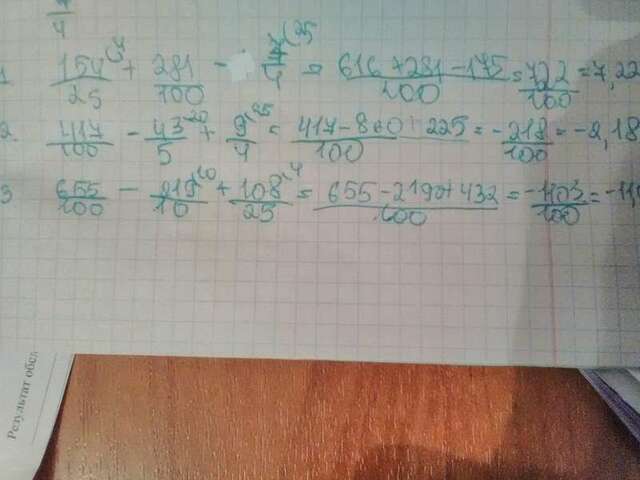 7/4
1 154/25 (4 + 281/100 - 7/4 (25 = 616+281-175/100 = 722/100 = 7,22
2. 417/100 - 43/5 20 + 9/4 25 = 417-860+225/100 = -218/100 = -2,18
3 655/100 - 219/10 10 + 108/25 4 = 655-2190+432/100 = -1103/100 = -11,
Результат обсл